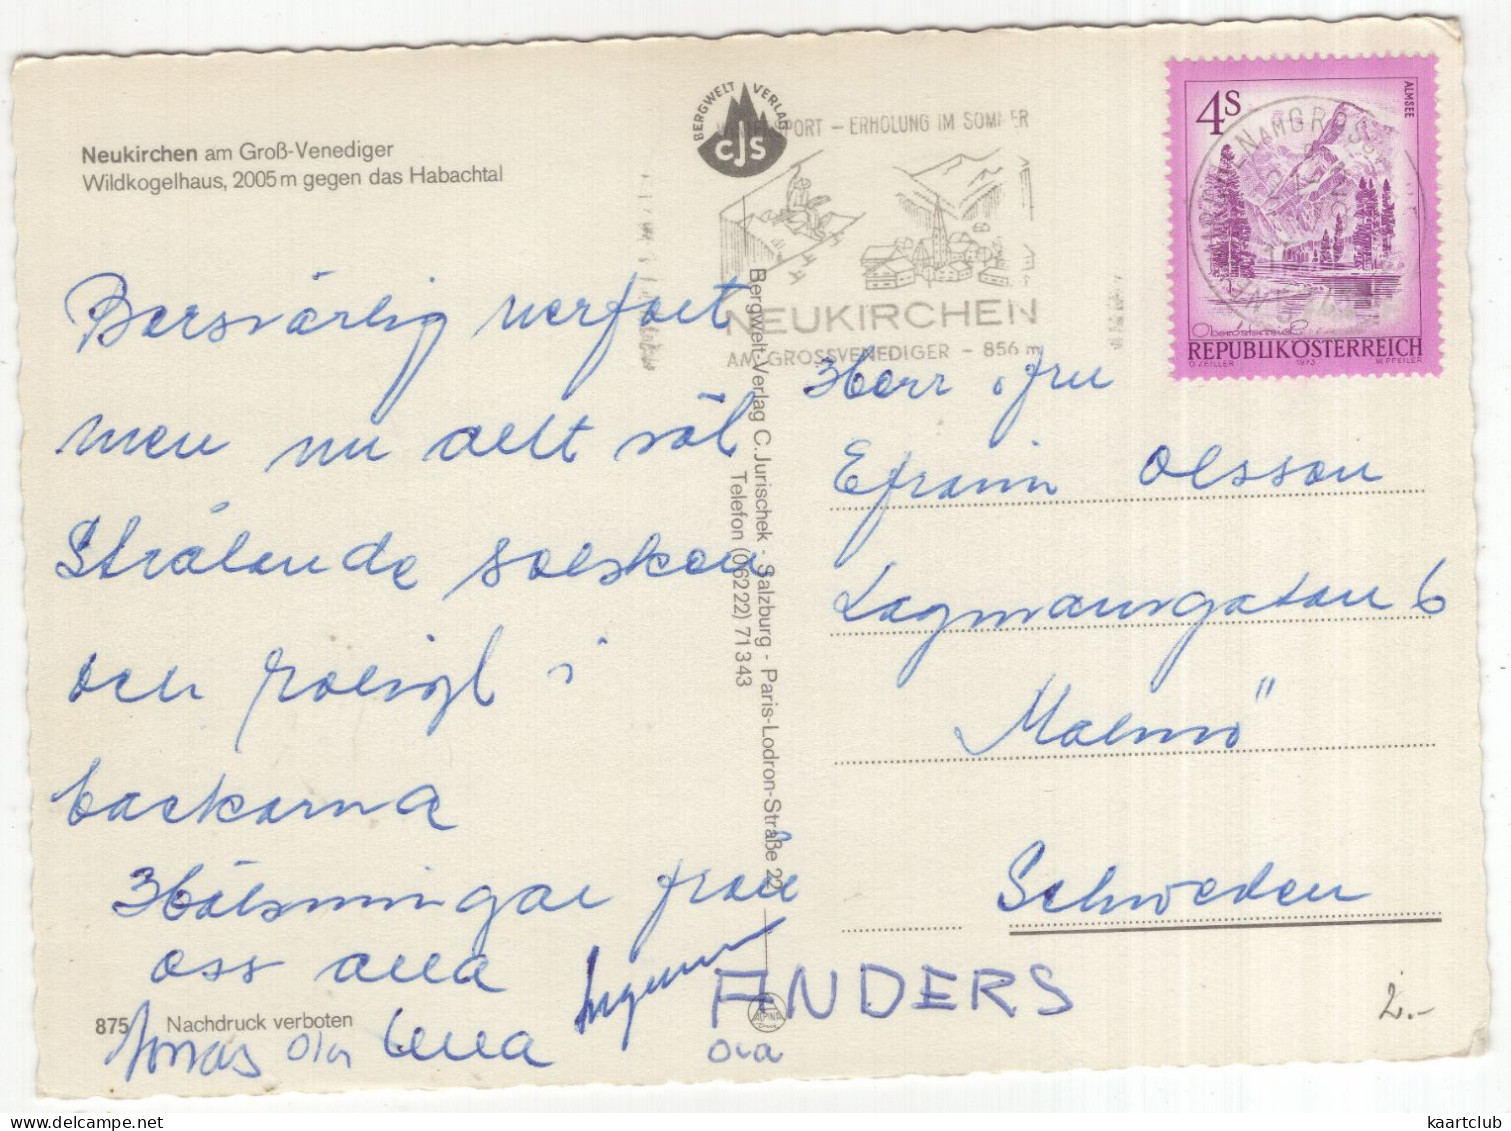 Neukirchen am Groß-Venediger
Wildkogelhaus, 2005 m gegen das Habachtal
BERGWELT VERLAG
CJS
PORT - ERHOLUNG IM SOMMER
NEUKIRCHEN
AM GROSSVENEDIGER - 856 m
4S
ALMSEE
Oberösterreich
REPUBLIK ÖSTERREICH
O. ZEILLER 1973 W. PFEILER
Besvärlig
men nu allt väl
Strålande solsken
och i
backarna
Hälsningar från
oss alla
Jonas Ola Lena
ANDERS
Ola
Bergwelt-Verlag C. Jurischek · Salzburg - Paris-Lodron-Straße 22
Telefon (06222) 71343
Herr o fru
Efraim Olsson
Lagmansgatan 6
"Malmö"
Schweden
875 Nachdruck verboten
ALPINA
2.-
kaartclub